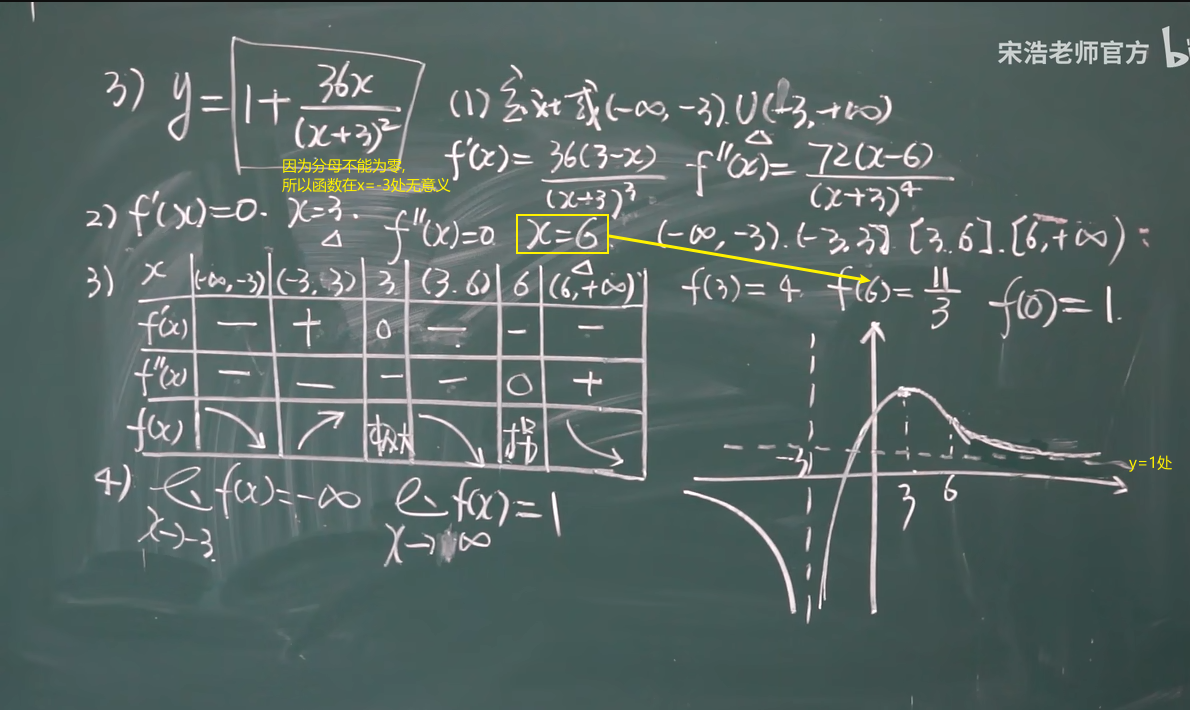 宋浩老师官方
3) y = 1 + 36x/(x+3)²
(1) 定义域 (-∞, -3) ∪ (-3, +∞)
因为分母不能为零,
所以函数在x=-3处无意义
f'(x) = 36(3-x)/(x+3)³ f''(x) = 72(x-6)/(x+3)⁴
2) f'(x)=0. x=3. f''(x)=0 x=6. (-∞, -3). (-3, 3]. [3, 6]. [6, +∞)
3) x (-∞, -3) (-3, 3) 3 (3, 6) 6 (6, +∞)
f'(x) − + 0 − - −
f''(x) − − − − 0 +
f(x) ↘ ↗ 极大 ↘ 拐 ↘
f(3) = 4. f(6) = 11/3 f(0) = 1.
-3 3 6
y=1处
4) f(x) = -∞ f(x) = 1
x→-3 x→ ∞